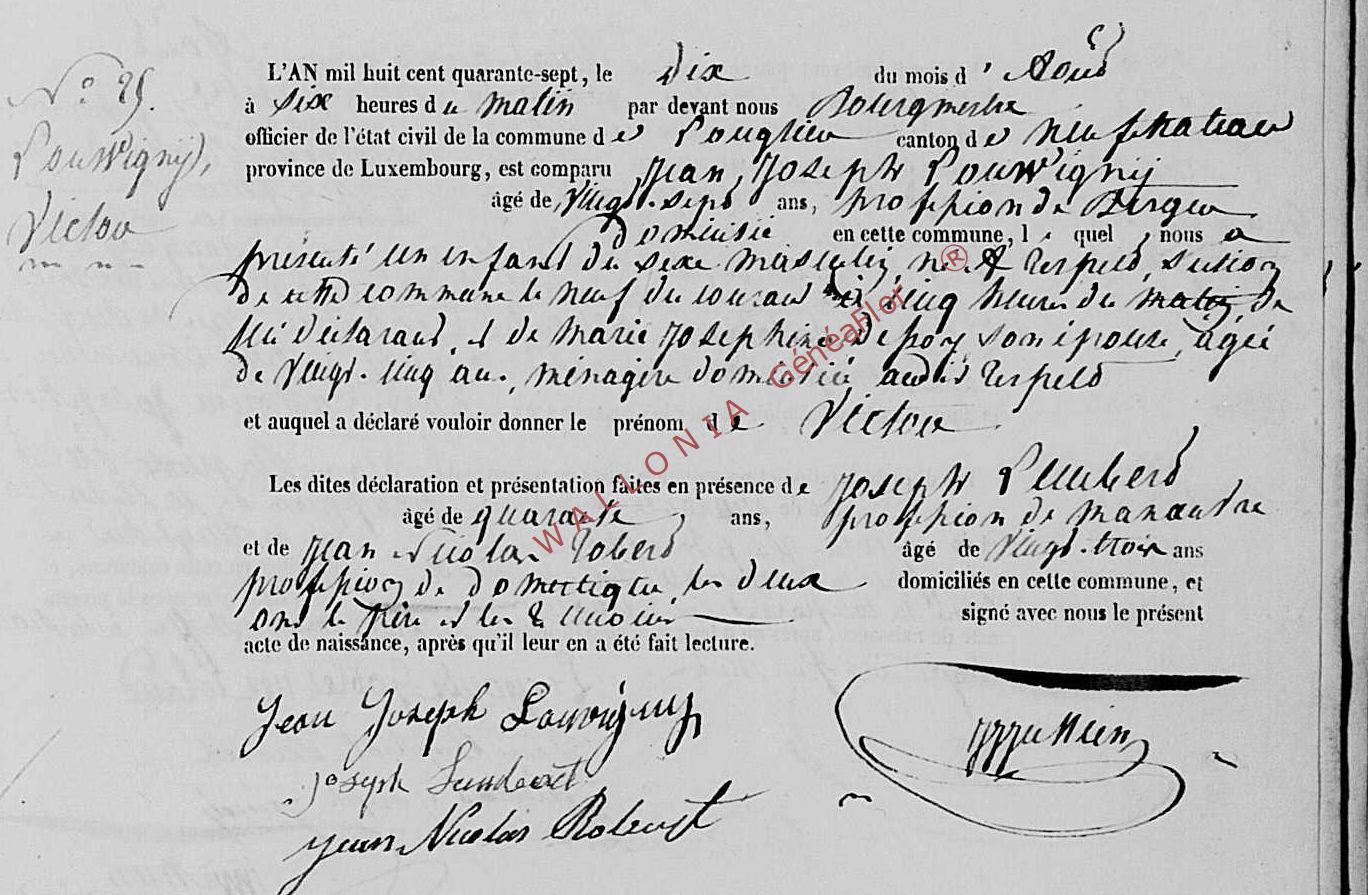 N° 25.
Louvvignÿ,
Victor
L'AN mil huit cent quarante-sept, le dix du mois d' Aout
à six heures du matin par devant nous Bourgmestre
officier de l'état civil de la commune de Longlier canton de neufchateau
province de Luxembourg, est comparu Jean, Joseph Louvvignÿ
âgé de Vingt-sept ans, profession de Berger
Domicilié en cette commune, lequel, nous a
présenté un enfant du sexe masculin, né à Respelt, section
de cette commune le neuf du courant à cinq heures du matin, de
lui déclarant, et de marie Josephine Depoy son épouse, agée
de Vingt-cinq ans, ménagère domiciliée audit Respelt
et auquel a déclaré vouloir donner le prénom de Victor
Les dites déclaration et présentation faites en présence de Joseph Lambert
âgé de quarante ans, profession de manœuvre
et de Jean Nicolas Robert âgé de Vingt-trois ans
profession de domestique, les deux domiciliés en cette commune, et
ont le père et les 2 témoins signé avec nous le présent
acte de naissance, après qu'il leur en a été fait lecture.
Jean Joseph Louvigny
Joseph Lambert
Jean Nicolas Robert
WALLONIA GénéaFlor ®